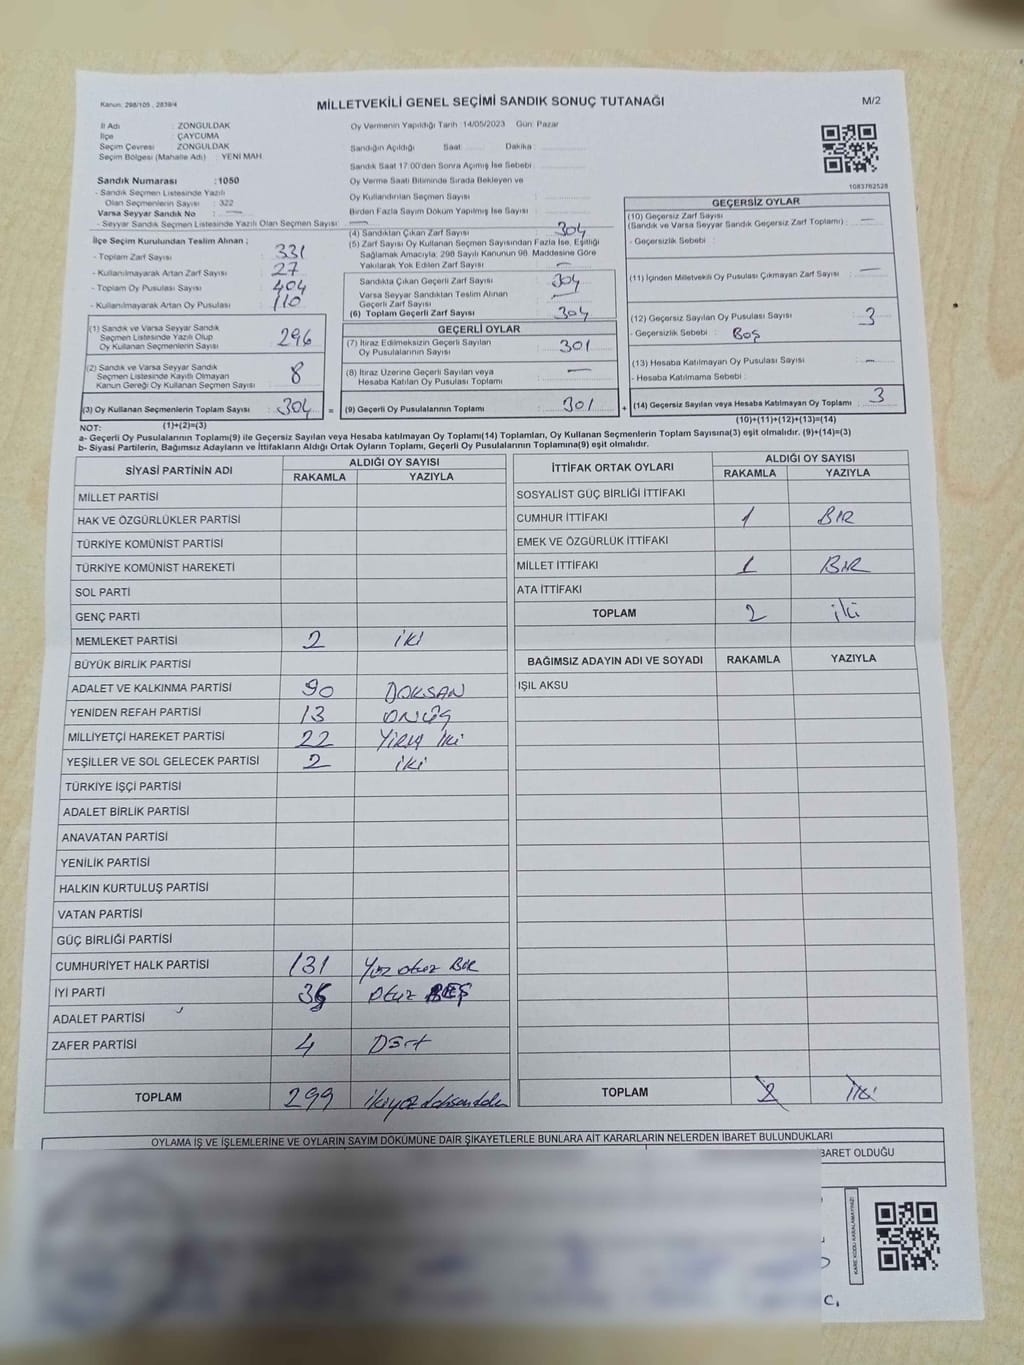 Kanun: 298/105 , 2839/4
MİLLETVEKİLİ GENEL SEÇİMİ SANDIK SONUÇ TUTANAĞI
M/2
İl Adı : ZONGULDAK
İlçe : ÇAYCUMA
Seçim Çevresi : ZONGULDAK
Seçim Bölgesi (Mahalle Adı) : YENİ MAH.
Sandık Numarası : 1050
- Sandık Seçmen Listesinde Yazılı
Olan Seçmenlerin Sayısı : 322
Varsa Seyyar Sandık No : —
- Seyyar Sandık Seçmen Listesinde Yazılı Olan Seçmen Sayısı: —
Oy Vermenin Yapıldığı Tarih: 14/05/2023 Gün: Pazar
Sandığın Açıldığı Saat Dakika
Sandık Saat 17:00'den Sonra Açılmış İse Sebebi
Oy Verme Saati Bitiminde Sırada Bekleyen ve
Oy Kullandırılan Seçmen Sayısı
Birden Fazla Sayım Döküm Yapılmış İse Sayısı
1083782528
İlçe Seçim Kurulundan Teslim Alınan ;
- Toplam Zarf Sayısı : 331
- Kullanılmayarak Artan Zarf Sayısı : 27
- Toplam Oy Pusulası Sayısı : 404
- Kullanılmayarak Artan Oy Pusulası : 110
(1) Sandık ve Varsa Seyyar Sandık
Seçmen Listesinde Yazılı Olup
Oy Kullanan Seçmenlerin Sayısı : 296
(2) Sandık ve Varsa Seyyar Sandık
Seçmen Listesinde Kayıtlı Olmayan
Kanun Gereği Oy Kullanan Seçmen Sayısı : 8
(3) Oy Kullanan Seçmenlerin Toplam Sayısı : 304 =
(1)+(2)=(3)
(4) Sandıktan Çıkan Zarf Sayısı : 304
(5) Zarf Sayısı Oy Kullanan Seçmen Sayısından Fazla İse, Eşitliği
Sağlamak Amacıyla, 298 Sayılı Kanunun 98. Maddesine Göre
Yakılarak Yok Edilen Zarf Sayısı : —
Sandıkta Çıkan Geçerli Zarf Sayısı : 304
Varsa Seyyar Sandıktan Teslim Alınan
Geçerli Zarf Sayısı : —
(6) Toplam Geçerli Zarf Sayısı : 304
GEÇERLİ OYLAR
(7) İtiraz Edilmeksizin Geçerli Sayılan
Oy Pusulalarının Sayısı : 301
(8) İtiraz Üzerine Geçerli Sayılan veya
Hesaba Katılan Oy Pusulası Toplamı : —
(9) Geçerli Oy Pusulalarının Toplamı : 301 +
GEÇERSİZ OYLAR
(10) Geçersiz Zarf Sayısı
(Sandık ve Varsa Seyyar Sandık Geçersiz Zarf Toplamı) : —
- Geçersizlik Sebebi :
(11) İçinden Milletvekili Oy Pusulası Çıkmayan Zarf Sayısı : —
(12) Geçersiz Sayılan Oy Pusulası Sayısı : 3
- Geçersizlik Sebebi : Boş
(13) Hesaba Katılmayan Oy Pusulası Sayısı : —
- Hesaba Katılmama Sebebi :
(14) Geçersiz Sayılan veya Hesaba Katılmayan Oy Toplamı : 3
(10)+(11)+(12)+(13)=(14)
NOT:
a- Geçerli Oy Pusulalarının Toplamı(9) ile Geçersiz Sayılan veya Hesaba katılmayan Oy Toplamı(14) Toplamları, Oy Kullanan Seçmenlerin Toplam Sayısına(3) eşit olmalıdır. (9)+(14)=(3)
b- Siyasi Partilerin, Bağımsız Adayların ve İttifakların Aldığı Ortak Oyların Toplamı, Geçerli Oy Pusulalarının Toplamına(9) eşit olmalıdır.
SİYASİ PARTİNİN ADI
ALDIĞI OY SAYISI
RAKAMLA YAZIYLA
MİLLET PARTİSİ
HAK VE ÖZGÜRLÜKLER PARTİSİ
TÜRKİYE KOMÜNİST PARTİSİ
TÜRKİYE KOMÜNİST HAREKETİ
SOL PARTİ
GENÇ PARTİ
MEMLEKET PARTİSİ 2 İKİ
BÜYÜK BİRLİK PARTİSİ
ADALET VE KALKINMA PARTİSİ 90 DOKSAN
YENİDEN REFAH PARTİSİ 13 ONÜÇ
MİLLİYETÇİ HAREKET PARTİSİ 22 YİRMİ İKİ
YEŞİLLER VE SOL GELECEK PARTİSİ 2 İKİ
TÜRKİYE İŞÇİ PARTİSİ
ADALET BİRLİK PARTİSİ
ANAVATAN PARTİSİ
YENİLİK PARTİSİ
HALKIN KURTULUŞ PARTİSİ
VATAN PARTİSİ
GÜÇ BİRLİĞİ PARTİSİ
CUMHURİYET HALK PARTİSİ 131 Yüz otuz BİR
İYİ PARTİ 35 Otuz BEŞ
ADALET PARTİSİ
ZAFER PARTİSİ 4 Dört
TOPLAM 299
İTTİFAK ORTAK OYLARI
ALDIĞI OY SAYISI
RAKAMLA YAZIYLA
SOSYALİST GÜÇ BİRLİĞİ İTTİFAKI
CUMHUR İTTİFAKI 1 BİR
EMEK VE ÖZGÜRLÜK İTTİFAKI
MİLLET İTTİFAKI 1 BİR
ATA İTTİFAKI
TOPLAM 2 iki
BAĞIMSIZ ADAYIN ADI VE SOYADI RAKAMLA YAZIYLA
IŞIL AKSU
TOPLAM 2 İki
OYLAMA İŞ VE İŞLEMLERİNE VE OYLARIN SAYIM DÖKÜMÜNE DAİR ŞİKAYETLERLE BUNLARA AİT KARARLARIN NELERDEN İBARET BULUNDUKLARI
BARET OLDUĞU
KARE KODU KARALAMAYINIZ!